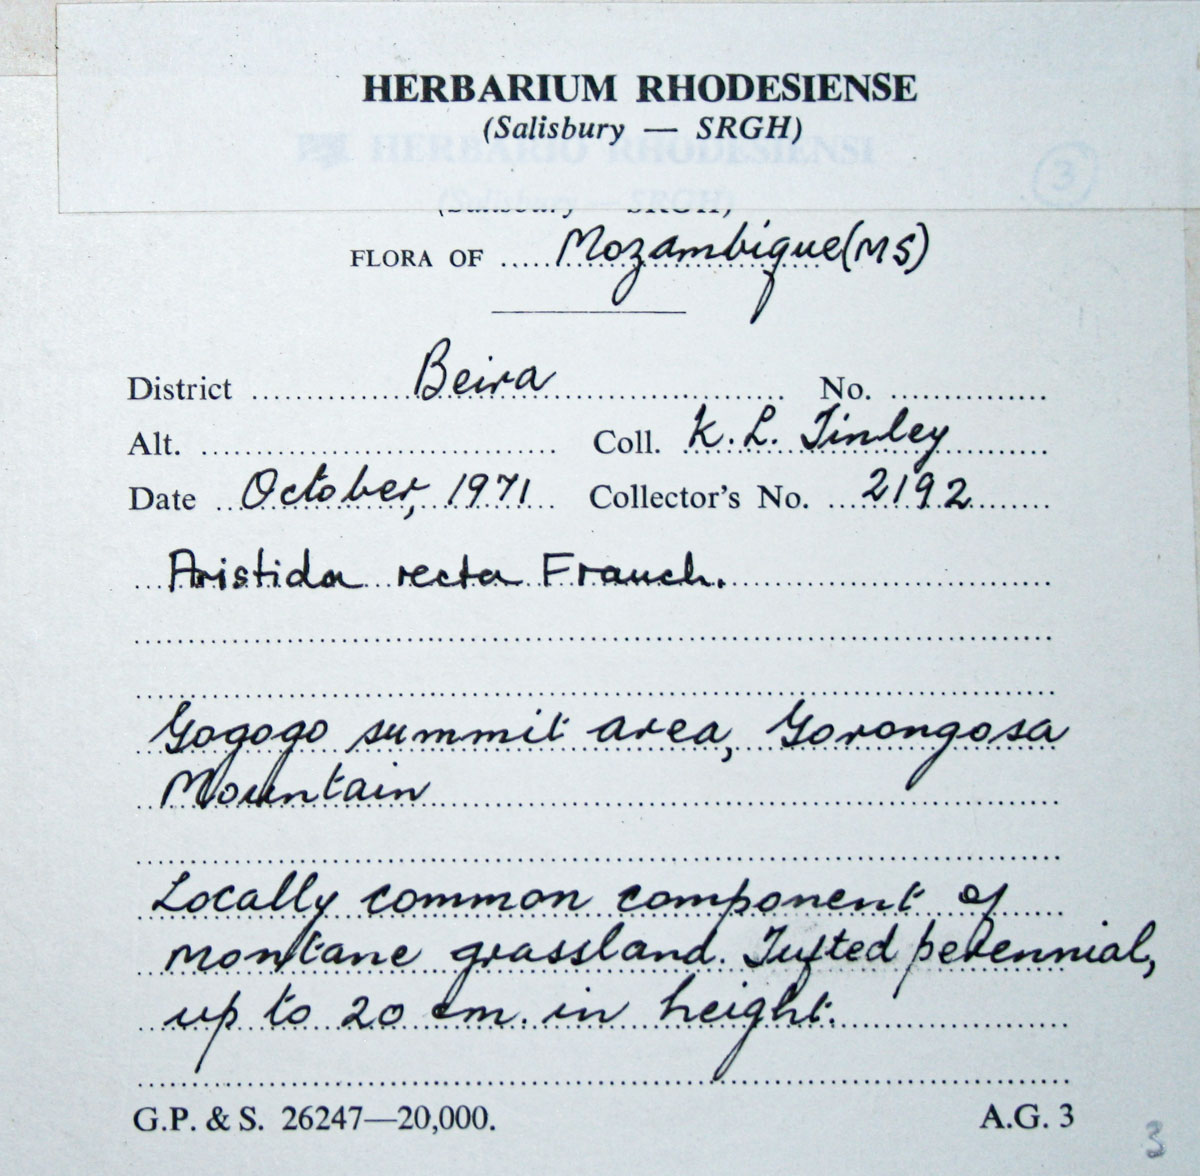 HERBARIUM RHODESIENSE
(Salisbury — SRGH)
HERBARIO RHODESIENSI
3
(Salisbury — SRGH)
FLORA OF Mozambique (MS)
District Beira No.
Alt. Coll. K. L. Tinley
Date October, 1971 Collector's No. 2192
Aristida recta Franch.
Gogogo summit area, Gorongosa
Mountain
Locally common component of
montane grassland. Tufted perennial,
up to 20 cm. in height.
G.P. & S. 26247—20,000. A.G. 3
3